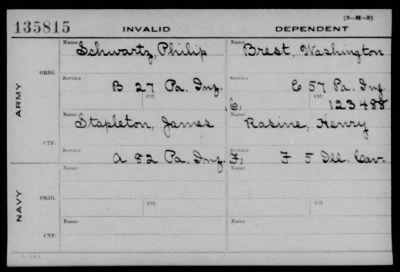 (3-M-3)
135815 INVALID DEPENDENT
Name Schwartz, Philip Name Brest, Washington
ARMY ORIG. Service B 27 Pa. Inf. Service C 57 Pa. Inf
Ctf. Ctf. 123488
Name Stapleton, James Name Rasine, Henry
CTF. Service A 82 Pa. Inf Service F 5 Ill. Cav.
NAVY Name Name
ORIG. Ctf. Ctf.
CTF. Name Name